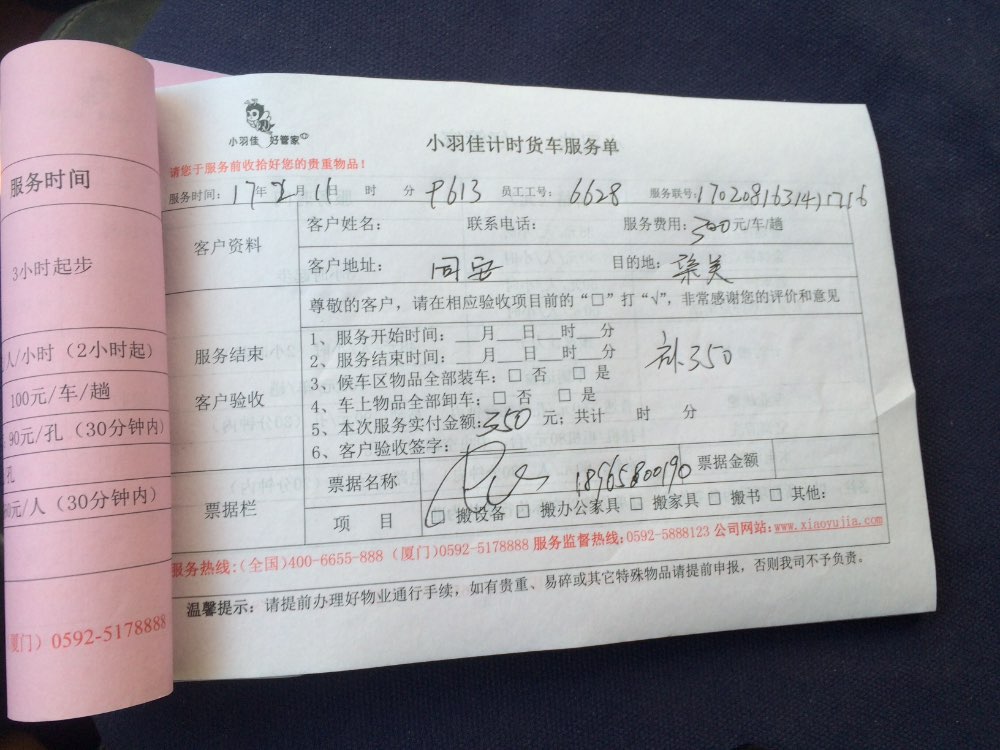 服务时间
3小时起步
人/小时（2小时起）
100元/车/趟
90元/孔（30分钟内）
孔
元/人（30分钟内）
厦门）0592-5178888
小羽佳 好管家
小羽佳计时货车服务单
请您于服务前收拾好您的贵重物品！
服务时间：17年2月11日 时 分 9613 员工工号：6628 服务联号：
客户资料
客户姓名： 联系电话： 服务费用：300元/车/趟
客户地址：同安 目的地：集美
尊敬的客户，请在相应验收项目前的“□”打“√”，非常感谢您的评价和意见
服务结束
客户验收
1、服务开始时间：__月__日__时__分
2、服务结束时间：__月__日__时__分
补350
3、候车区物品全部装车：□ 否 □ 是
4、车上物品全部卸车：□ 否 □ 是
5、本次服务实付金额：350元；共计 时 分
6、客户验收签字：
票据栏
票据名称 18965800190 票据金额
项 目 □ 搬设备 □ 搬办公家具 □ 搬家具 □ 搬书 □ 其他：
服务热线：(全国)400-6655-888 (厦门)0592-5178888 服务监督热线：0592-5888123 公司网站：www.xiaoyujia.com
温馨提示：请提前办理好物业通行手续，如有贵重、易碎或其它特殊物品请提前申报，否则我司不予负责。